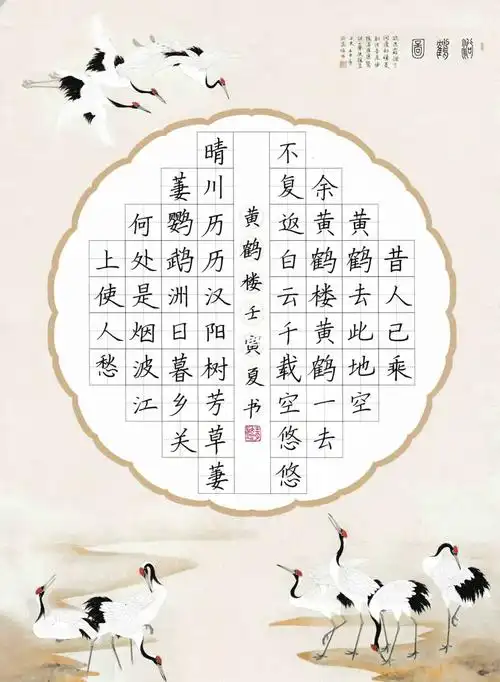 鶴圖
昔人已乘
黄鹤去此地空
余黄鹤楼黄鹤一去
不复返白云千载空悠悠
黄鹤楼壬寅夏书
晴川历历汉阳树芳草萋
萋鹦鹉洲日暮乡关
何处是烟波江
上使人愁